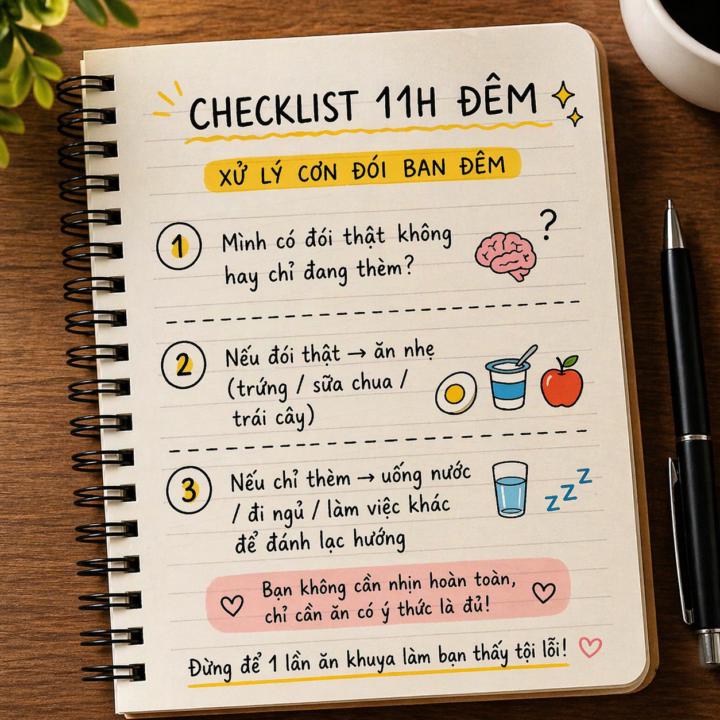 CHECKLIST 11H ĐÊM
XỬ LÝ CƠN ĐÓI BAN ĐÊM
1 Mình có đói thật không
hay chỉ đang thèm?
?
2 Nếu đói thật → ăn nhẹ
(trứng / sữa chua /
trái cây)
3 Nếu chỉ thèm → uống nước
/ đi ngủ / làm việc khác
để đánh lạc hướng
z z z
Bạn không cần nhịn hoàn toàn,
chỉ cần ăn có ý thức là đủ!
Đừng để 1 lần ăn khuya làm bạn thấy tội lỗi!